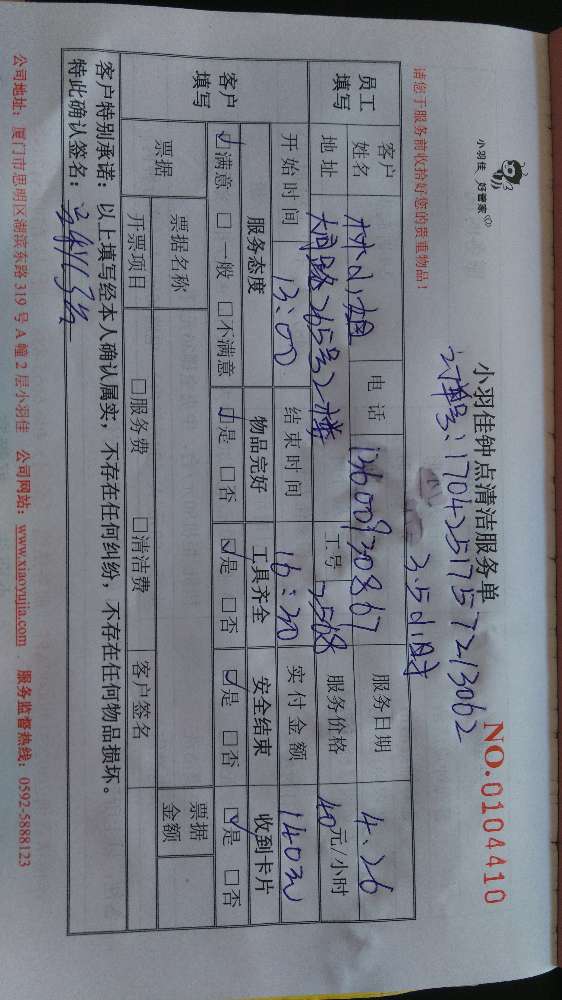 小羽佳 好管家
小羽佳钟点清洁服务单 NO.0104410
订单号:1704251757213062
请您于服务前收拾好您的贵重物品!
3.5小时
员工填写 客户姓名 林小姐 电话 13600930867 服务日期 4.26
地址 265号2楼 工号 2568 服务价格 40元/小时
客户填写 开始时间 13:00 结束时间 16:30 实付金额 140元
服务态度 物品完好 工具齐全 安全结束 收到卡片
☑满意 □一般 □不满意 ☑是 □否 ☑是 □否 ☑是 □否 ☑是 □否
票据 票据名称 票据金额
开票项目 □服务费 □清洁费 客户签名
客户特别承诺:以上填写经本人确认属实,不存在任何纠纷,不存在任何物品损坏。
特此确认签名:
公司地址:厦门市思明区湖滨东路319号A幢2层小羽佳 公司网站:www.xiaoyujia.com 服务监督热线:0592-5888123